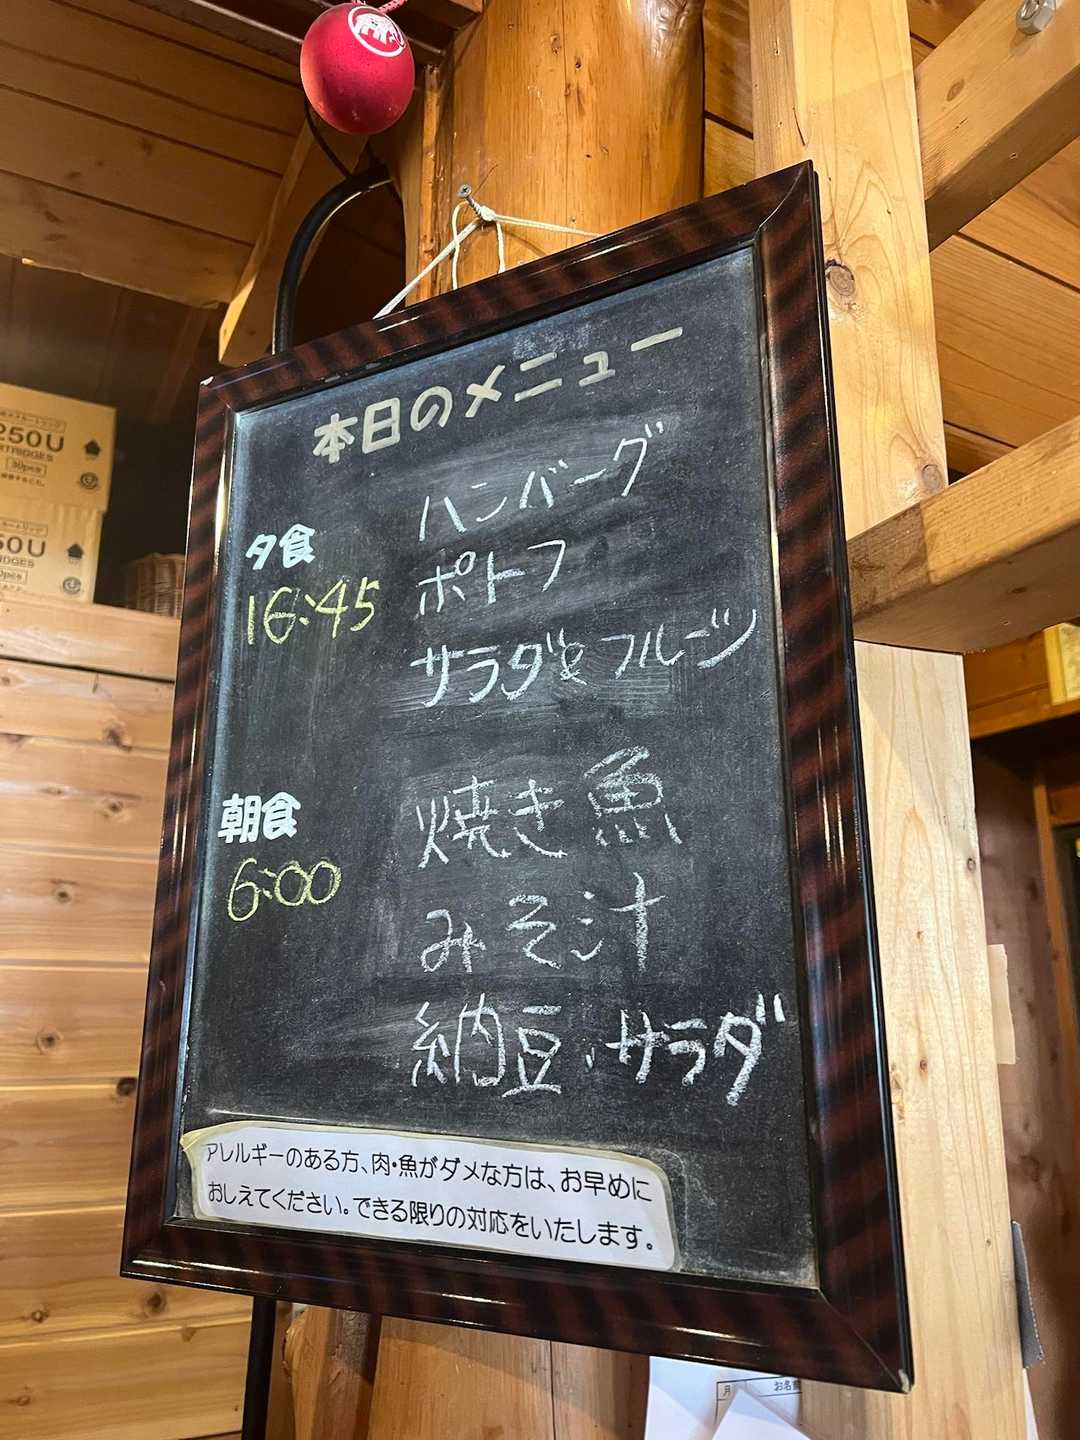 本日のメニュー
夕食
16:45
ハンバーグ
ポトフ
サラダとフルーツ
朝食
6:00
焼き魚
みそ汁
納豆、サラダ
アレルギーのある方、肉・魚がダメな方は、お早めに
おしえてください。できる限りの対応をいたします。
250U
CARTRIDGES
30pcs
50U
月
お名前